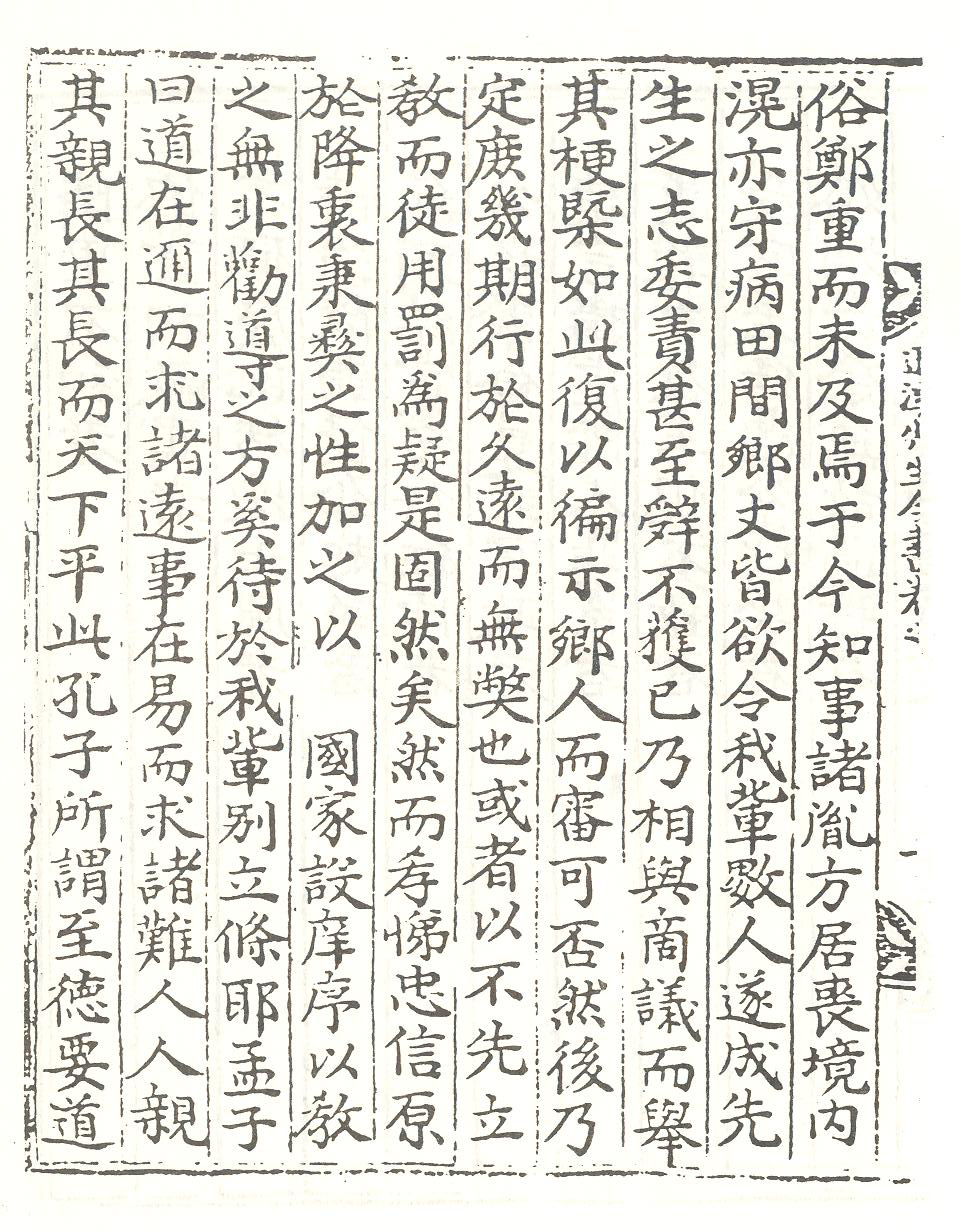 俗鄭重而未及焉于今知事諸胤方居喪境內
滉亦守病田間鄉丈皆欲令我輩數人遂成先
生之志委責甚至辭不獲已乃相與商議而舉
其梗槩如此復以徧示鄉人而審可否然後乃
定庶幾期行於久遠而無弊也或者以不先立
敎而徒用罰爲疑是固然矣然而孝悌忠信原
於降衷秉彝之性加之以　國家設庠序以敎
之無非勸導之方奚待於我輩別立條耶孟子
曰道在邇而求諸遠事在易而求諸難人人親
其親長其長而天下平此孔子所謂至德要道